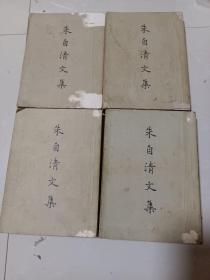 朱自清文集
朱自清文集
朱自清文集
朱自清文集